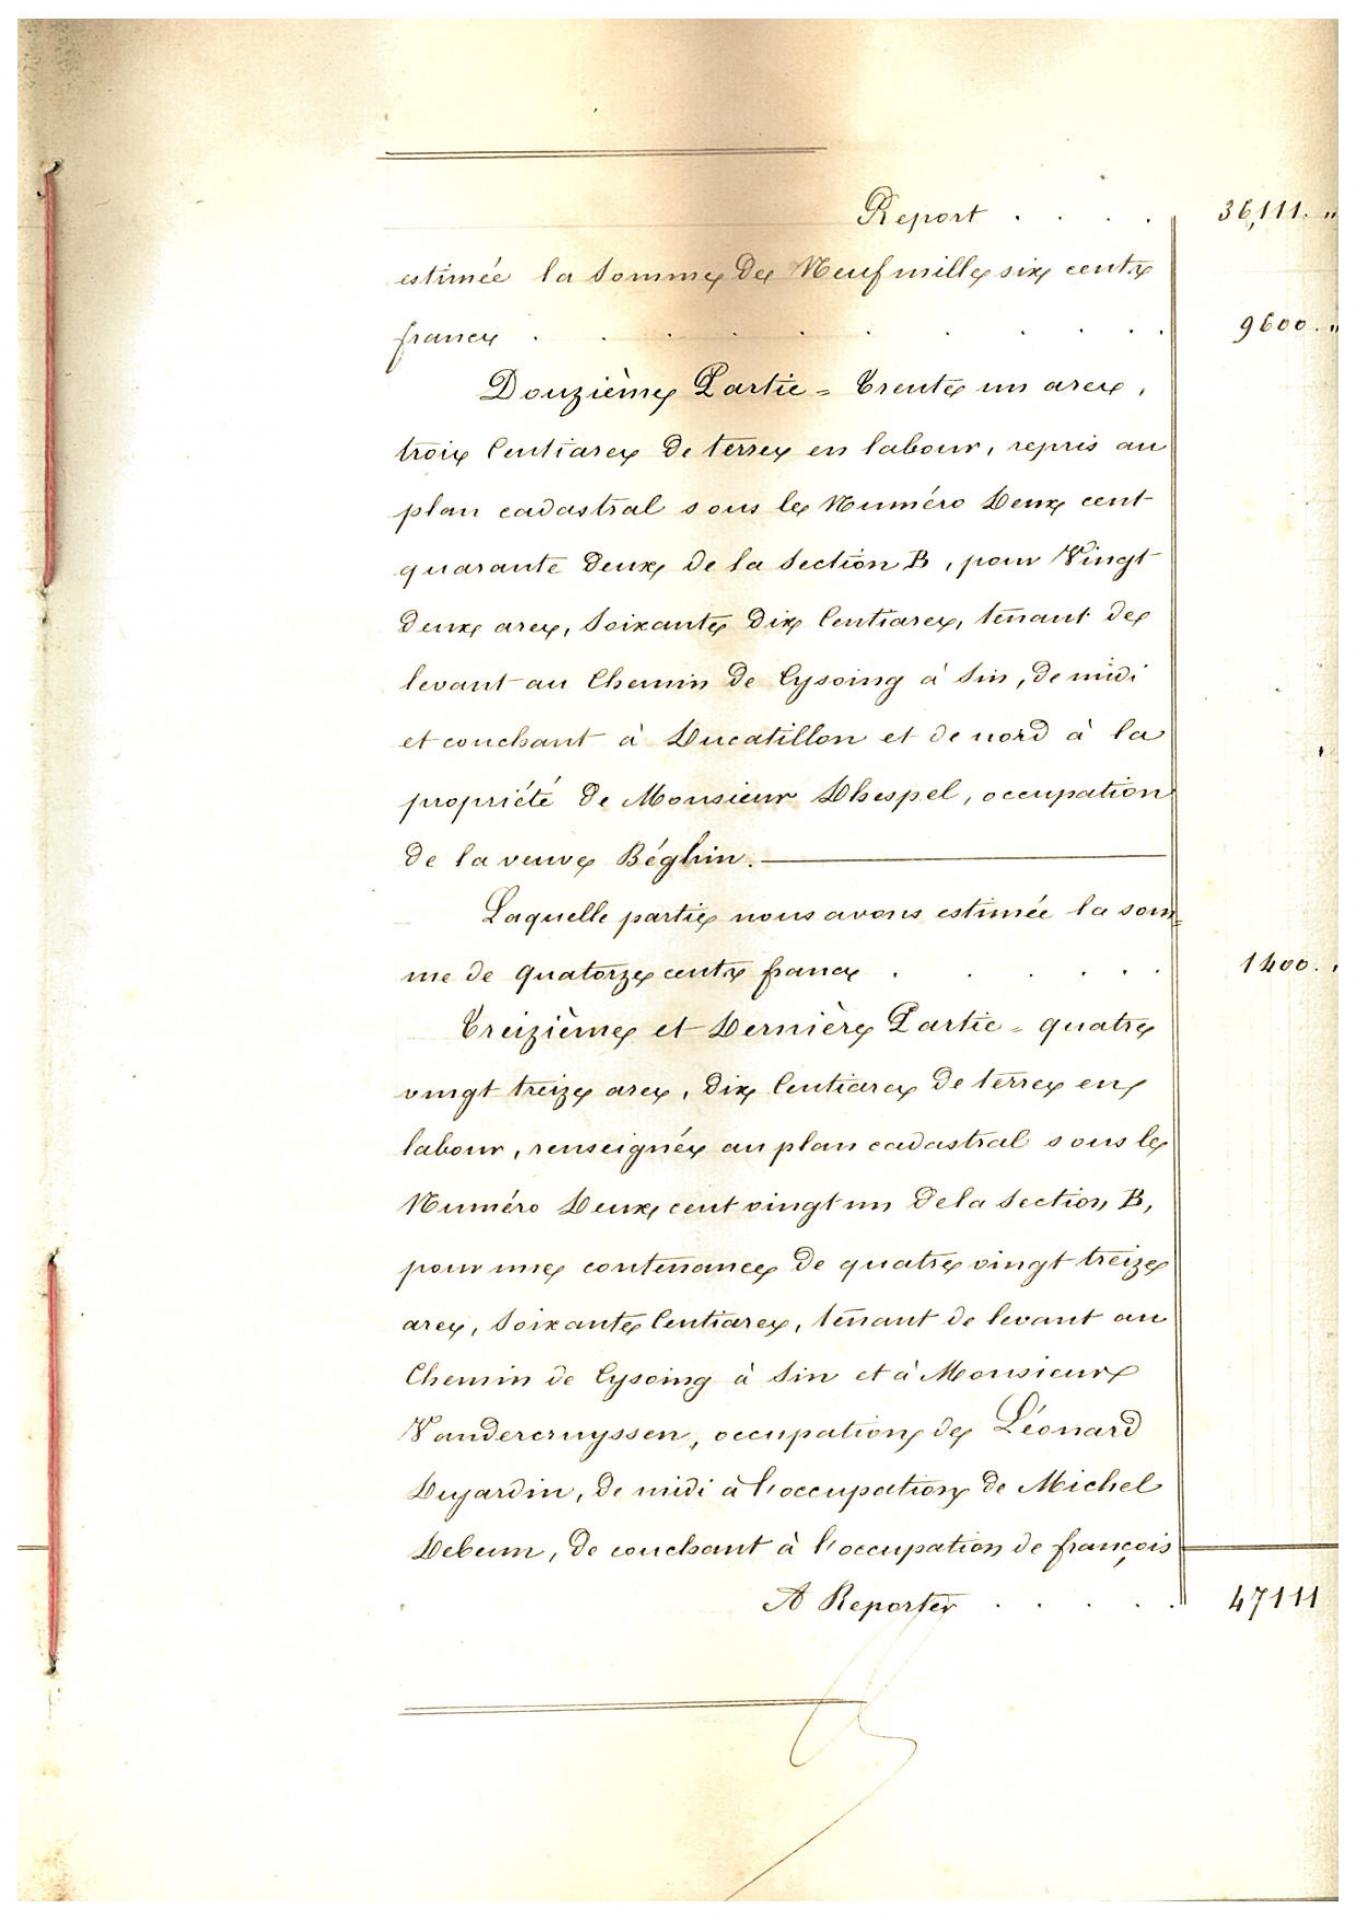 Report . . . . 36,111. "
estimée la somme de Neuf mille six cents
francs . . . . . . . . . 9600. "
Douzième Partie = Trente un ares,
trois Centiares de terre en labour, repris au
plan cadastral sous le Numéro Deux cent
quarante deux de la section B, pour Vingt
deux ares, Soixante dix Centiares, tenant de
levant au Chemin de Cysoing à Sin, de midi
et couchant à Ducatillon et de nord à la
propriété de Monsieur Dhespel, occupation
de la veuve Béghin.
Laquelle partie nous avons estimée la som=
me de quatorze cents francs . . . . . 1400. "
Treizième et Dernière Partie = quatre
vingt treize ares, dix Centiares de terre en
labour, renseignée au plan cadastral sous le
Numéro Deux cent vingt un de la section B,
pour une contenance de quatre vingt treize
ares, Soixante Centiares, tenant de levant au
Chemin de Cysoing à Sin et à Monsieur
Vandercruyssen, occupation de Léonard
Dujardin, de midi à l'occupation de Michel
de couchant à l'occupation de françois
A Reporter . . . . . 47111